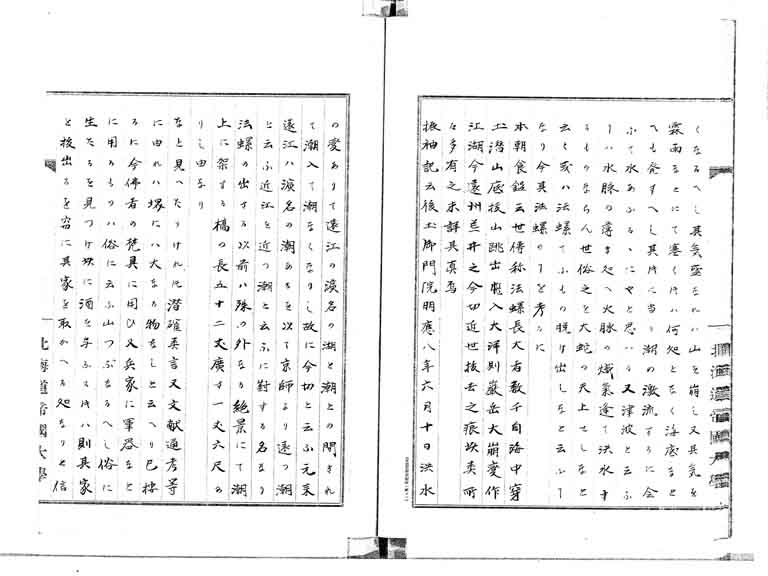 くなるへし其気盛なれハ山を崩し又其気を
雲雨なとにて塞くときハ何処となく海底なと
へも発すへし其時に当り潮の激流するに会
ふて水あふるゝにやと思ハる又津波と云ふ
ハ水脉の薄き処へ火脉の熾氣逢て洪水す
るものならん世俗之と大蛇の天上せしなと
云ひ或ハ法螺てふもの脱け出しなと云ふ
なり今其法螺の を考るに
本朝食鑑云世傳称法螺長大者数千自海中穿
土潜山底拔山跳出 入大洋則嵓岳大崩変作
江湖今遠州荒井之今切近世拔去之痕垁类所
々多有之未詳其真焉
振袖記云後土御門院明應八年六月十日洪水
の変ありて遠江の濵名の湖と潮との間きれ
て潮入て湖なくなりし故に今切と云ふ元来
遠江ハ濵名の湖あるを以て京師より遠つ湖
と云ふ近江を近つ湖と云ふに対する名なり
法螺の出する以前ハ殊の外なる絶景にて湖
上に架する橋の長五十二丈廣サ一丈六尺の
りし由なり
なと見へたりけれハ潜確类言又文献通考等
に由れハ塚にハ大なる物なしと云へり巳按
るに今佛者の梵具に用ひ又兵家に軍器なと
に用るものハ俗に云ふ山つぶなるへし俗に
生たるを見つけ次に酒を与ふるときハ則其家
と拔出るを窃に其家を取かへる処なりと信
北海道帝國大學